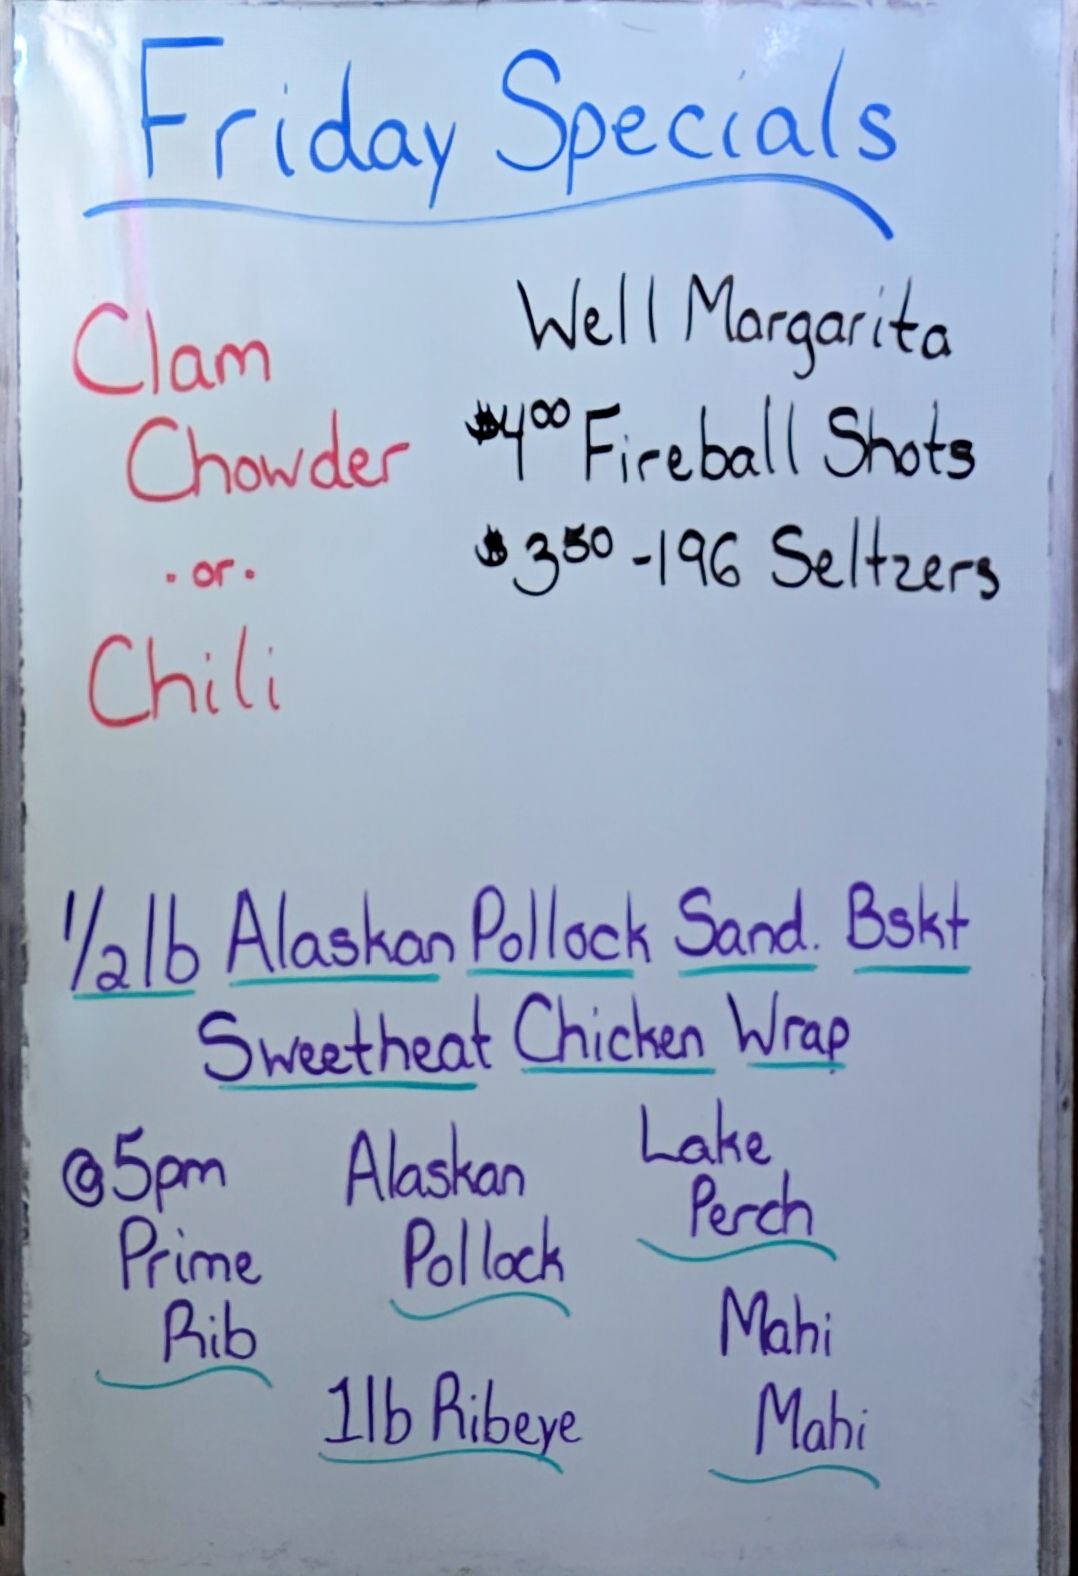 Friday Specials
Clam
Chowder
. or .
Chili
Well Margarita
$4.00 Fireball Shots
$3.50 -196 Seltzers
1/2 lb Alaskan Pollock Sand. Bskt
Sweetheat Chicken Wrap
@5pm
Prime
Rib
Alaskan
Pollock
1lb Ribeye
Lake
Perch
Mahi
Mahi